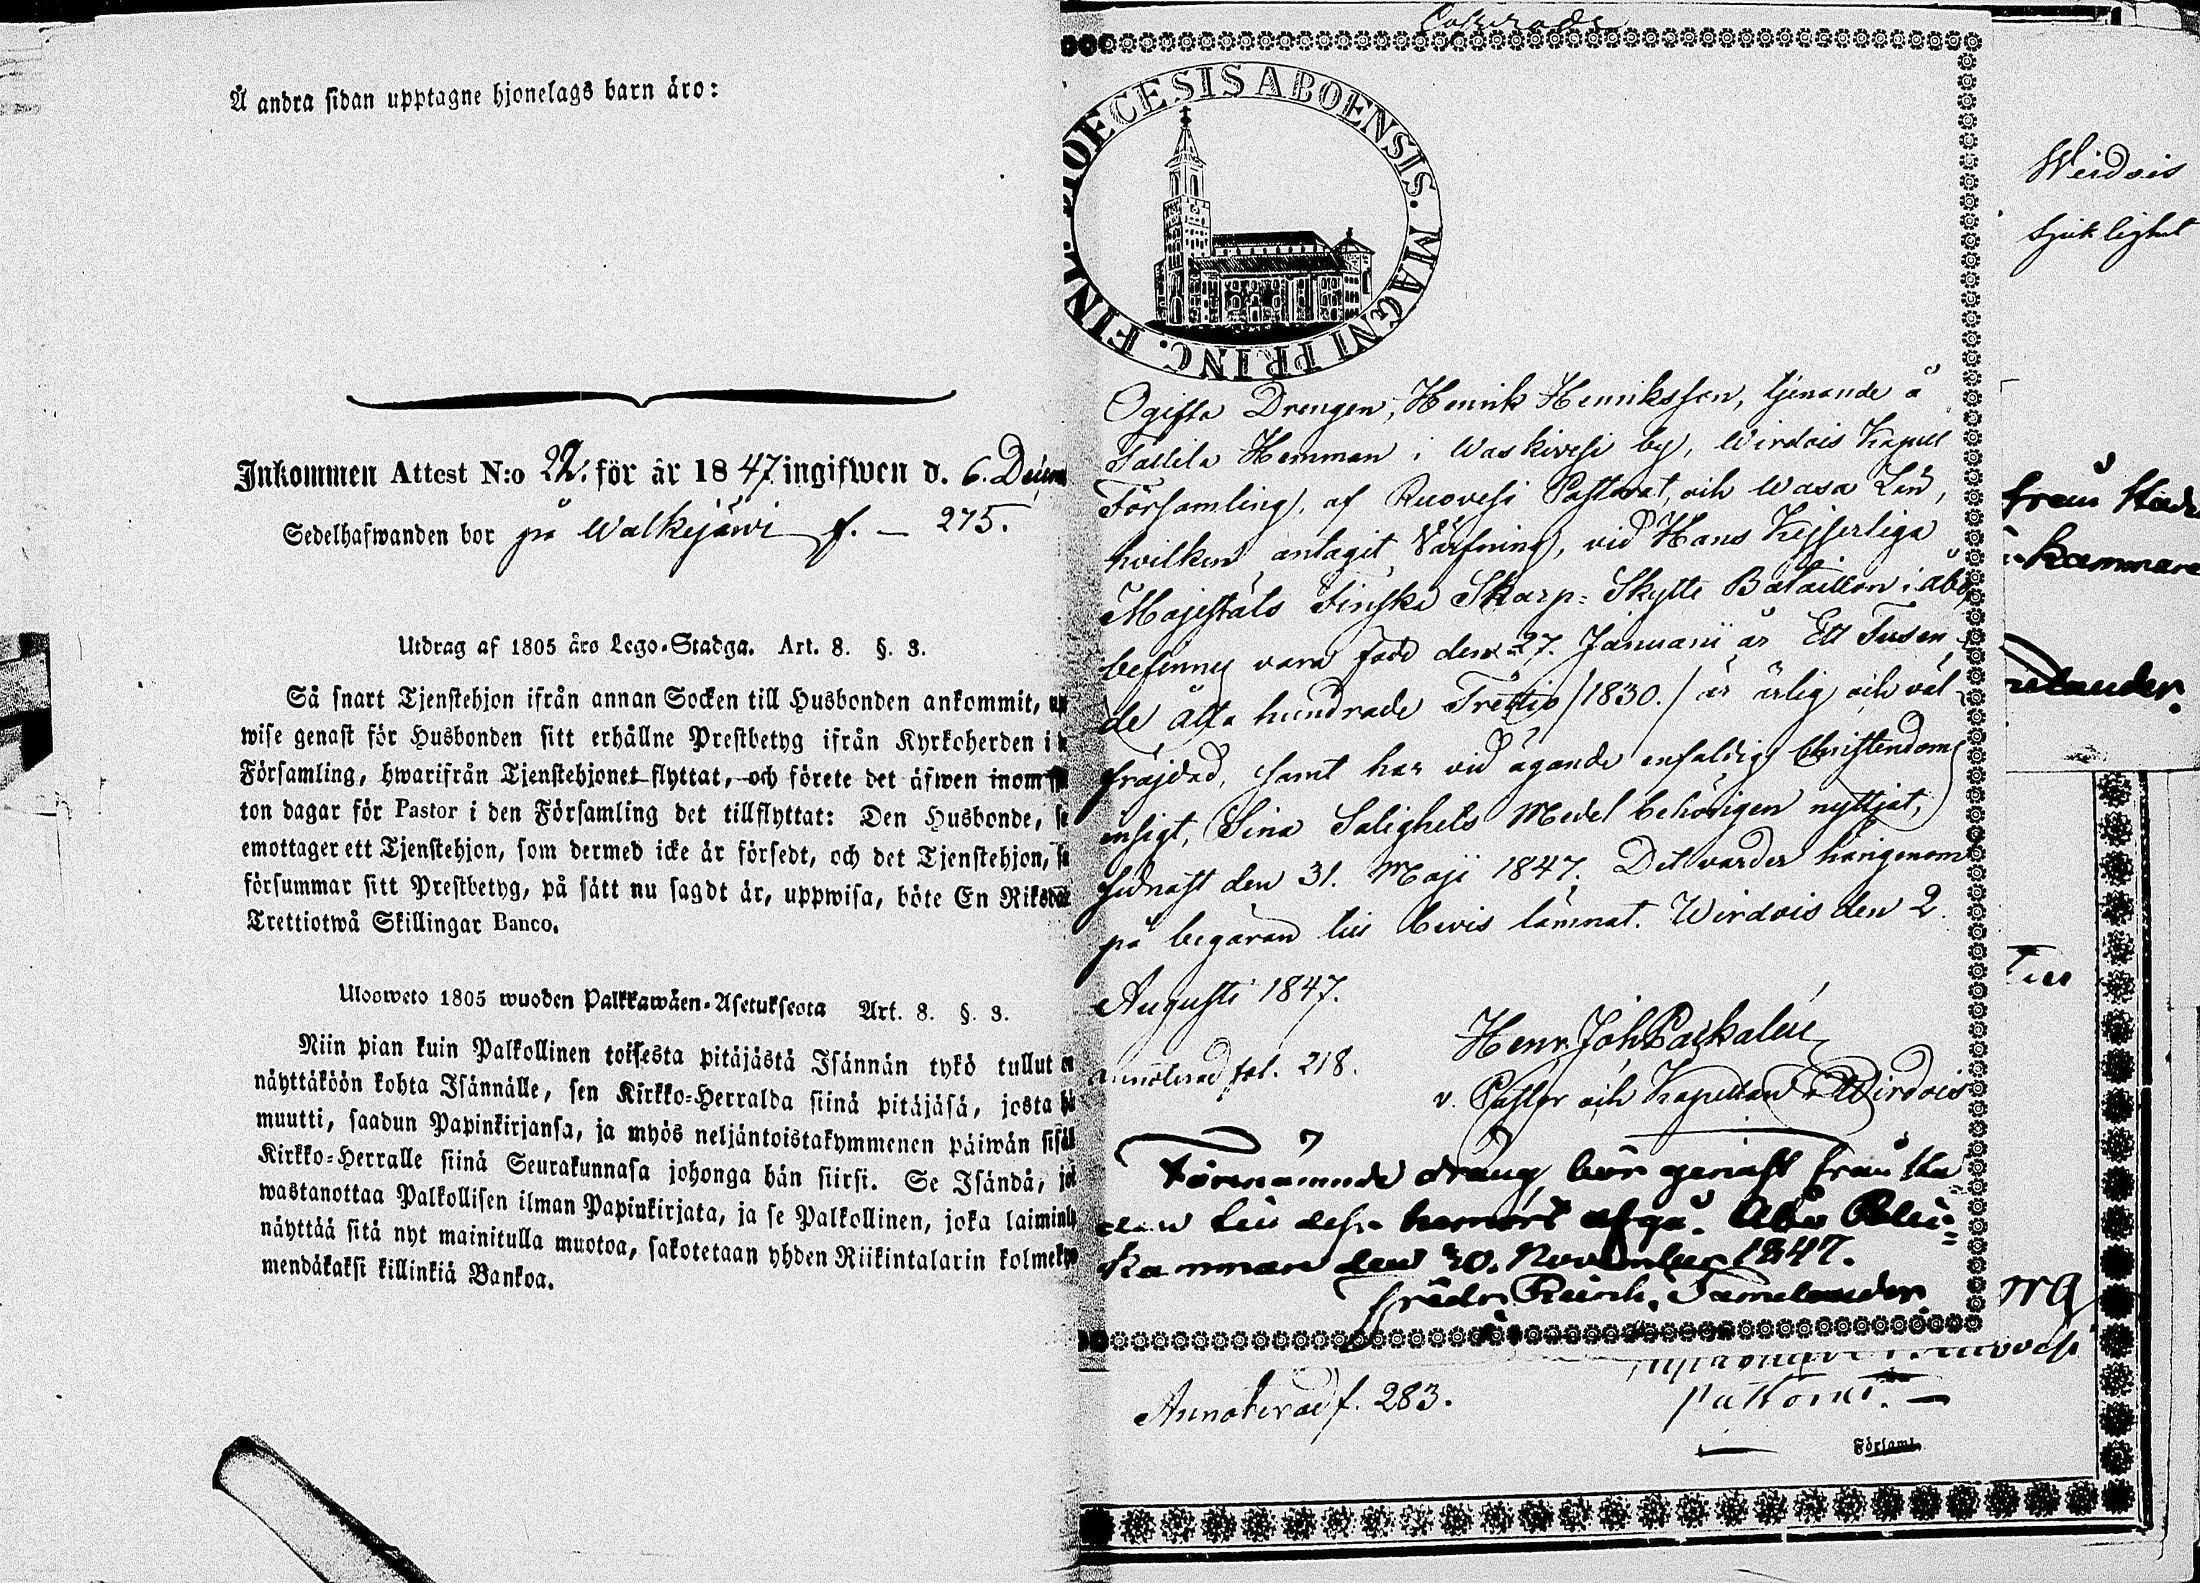 Å andra sidan upptagne hjonelags barn äro:
Inkommen Attest N:o 22. för år 1847 ingifwen d. 6. Decem
Sedelhafwanden bor på Walkejärvi f. — 275.
Utdrag af 1805 års Lego-Stadga. Art. 8. §. 3.
Så snart Tjenstehjon ifrån annan Socken till Husbonden ankommit, up
wise genast för Husbonden sitt erhållne Prestbetyg ifrån Kyrkoherden i
Församling, hwarifrån Tjenstehjonet flyttat, och förete det äfwen inom
ton dagar för Pastor i den Församling det tillflyttat: Den Husbonde, s
emottager ett Tjenstehjon, som dermed icke är försedt, och det Tjenstehjon, s
försummar sitt Prestbetyg, på sätt nu sagdt är, uppwisa, böte En Riksdal
Trettiotwå Skillingar Banco.
Uloosweto 1805 wuoden Palkkawäen-Asetuksesta Art. 8. §. 3.
Niin pian kuin Palkollinen toisesta pitäjästä Isännän tykö tullut on
näyttäköön kohta Isännälle, sen Kirkko-Herralda siinä pitäjäsä, josta hä
muutti, saadun Papinkirjansa, ja myös neljäntoistakymmenen päiwän sisäl
Kirkko-Herralle siinä Seurakunnasa johonga hän siirsi. Se Isändä, jo
wastanottaa Palkollisen ilman Papinkirjata, ja se Palkollinen, joka laiminly
näyttää sitä nyt mainitulla muotoa, sakotetaan yhden Riikintalarin kolmeky
mendäkaksi killinkiä Bankoa.
DIOECESIS ABOENSIS. MAGNI PRINC. FINL.
Ogifta Drengen, Henrik Henriksson, tjenande å
Hemman i Waskivesi by, Wirdois Kapell
Församling, af Ruovesi Pastorat, och Wasa Län,
hvilken antagit Värfning, vid Hans Kejserliga
Majestäts Finska Skarp-Skytte Bataillon i Åbo,
befinnes vara född den 27. Januarii år Ett Tusen
de åtta hundrade Trettio /1830./ är ärlig och väl
fräjdad, samt har vid ägande enfaldig Christendoms
insigt, Sina Salighets Medel behörigen nyttjat,
sednast den 31. Maji 1847. Det varder härigenom
på begäran till bevis lämnat. Wirdois den 2.
Augusti 1847.
Henr. Joh. Paskaleie
Annoterad fol. 218.
v. Pastor och Kapellan i Wirdois
Förenämnde dräng bör genast från sta
den till dess hemort afgå. Åbo Poli-
Kammare den 30. November 1847.
Fredr. Reinh. Tamelander
Annoterad f. 283.
Församl.
Weidois
Sjuklighet
från Stad
Kammare
elander.